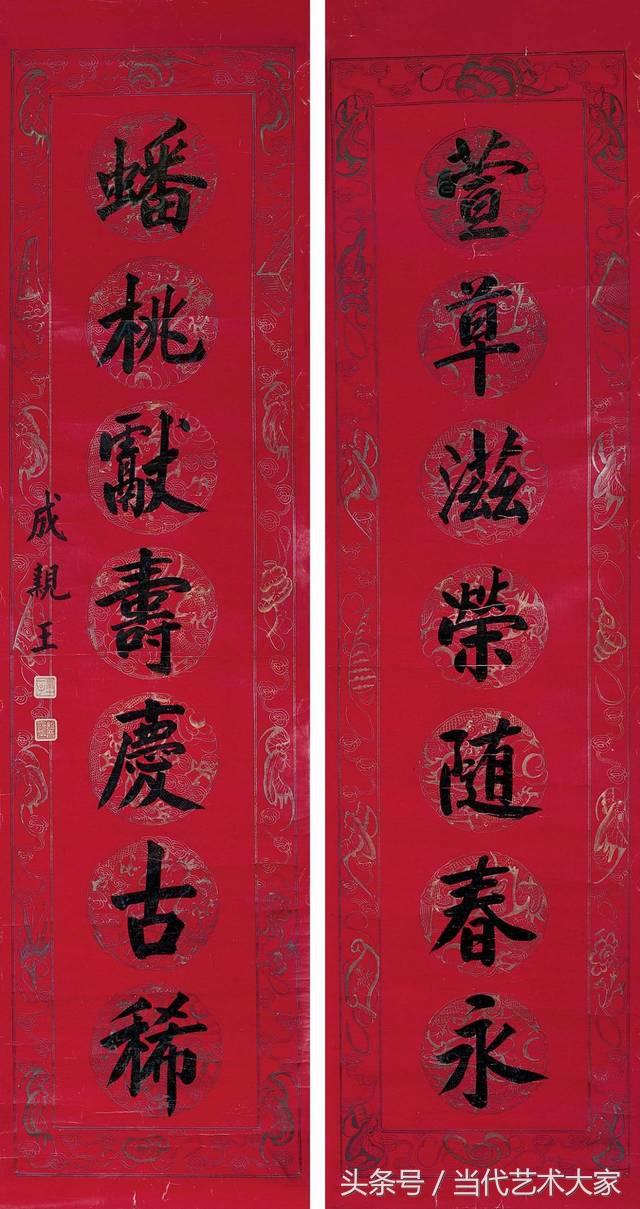 萱草滋榮随春永
蟠桃獻壽慶古稀
成親王
头条号 / 当代艺术大家